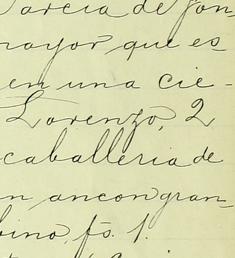 Garcia de fon-
mayor que es
en una cie-
Lorenzo, 2
caballeria de
n ancon gran-
bino, fs. 1.